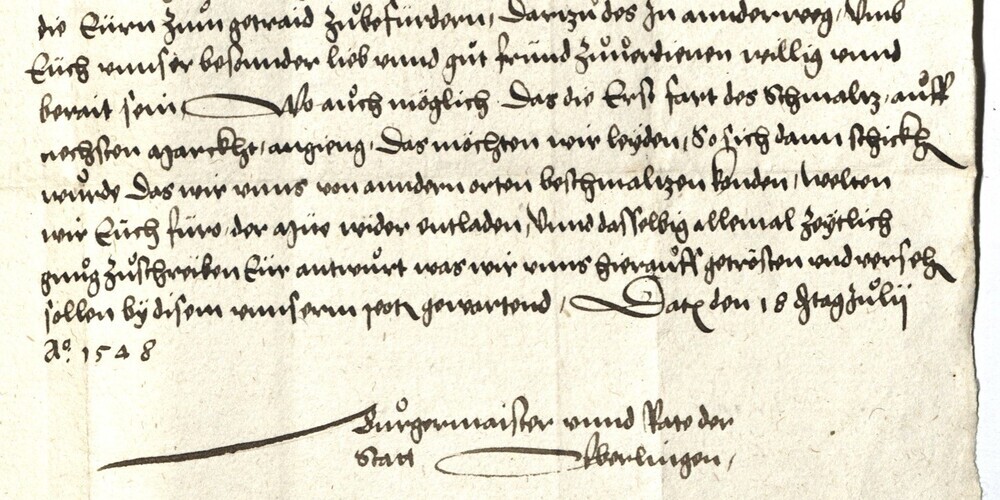 die Eürn zům getraid zůbefürdern, Dartzů des In annderweg, Vmb
Eüch vnnser besonnder lieb vnnd gůt fründ zůuerdienen willig vnnd
berait sein Wo aůch möglich Das die Erst fart des Schmaltz, aůff
nechsten Marckht, angieng, Das möchten wir leyden, So sich dann schickh
wůrde Das wir vnns von anndern orten beschmaltzen konden, welten
wir Eüch füro, der Müe wider entladen, Vnnd dasselbig allemal zeytlich
gnůg zůschreiben Eür antwůrt was wir vnns hieraůff getrösten vnd verseh
sollen by disem vnnserm pott gewartend, Dat den 18 tag Julii
Aº. 1548
Bůrgermaister vnnd Rate der
Statt Vberlingen,